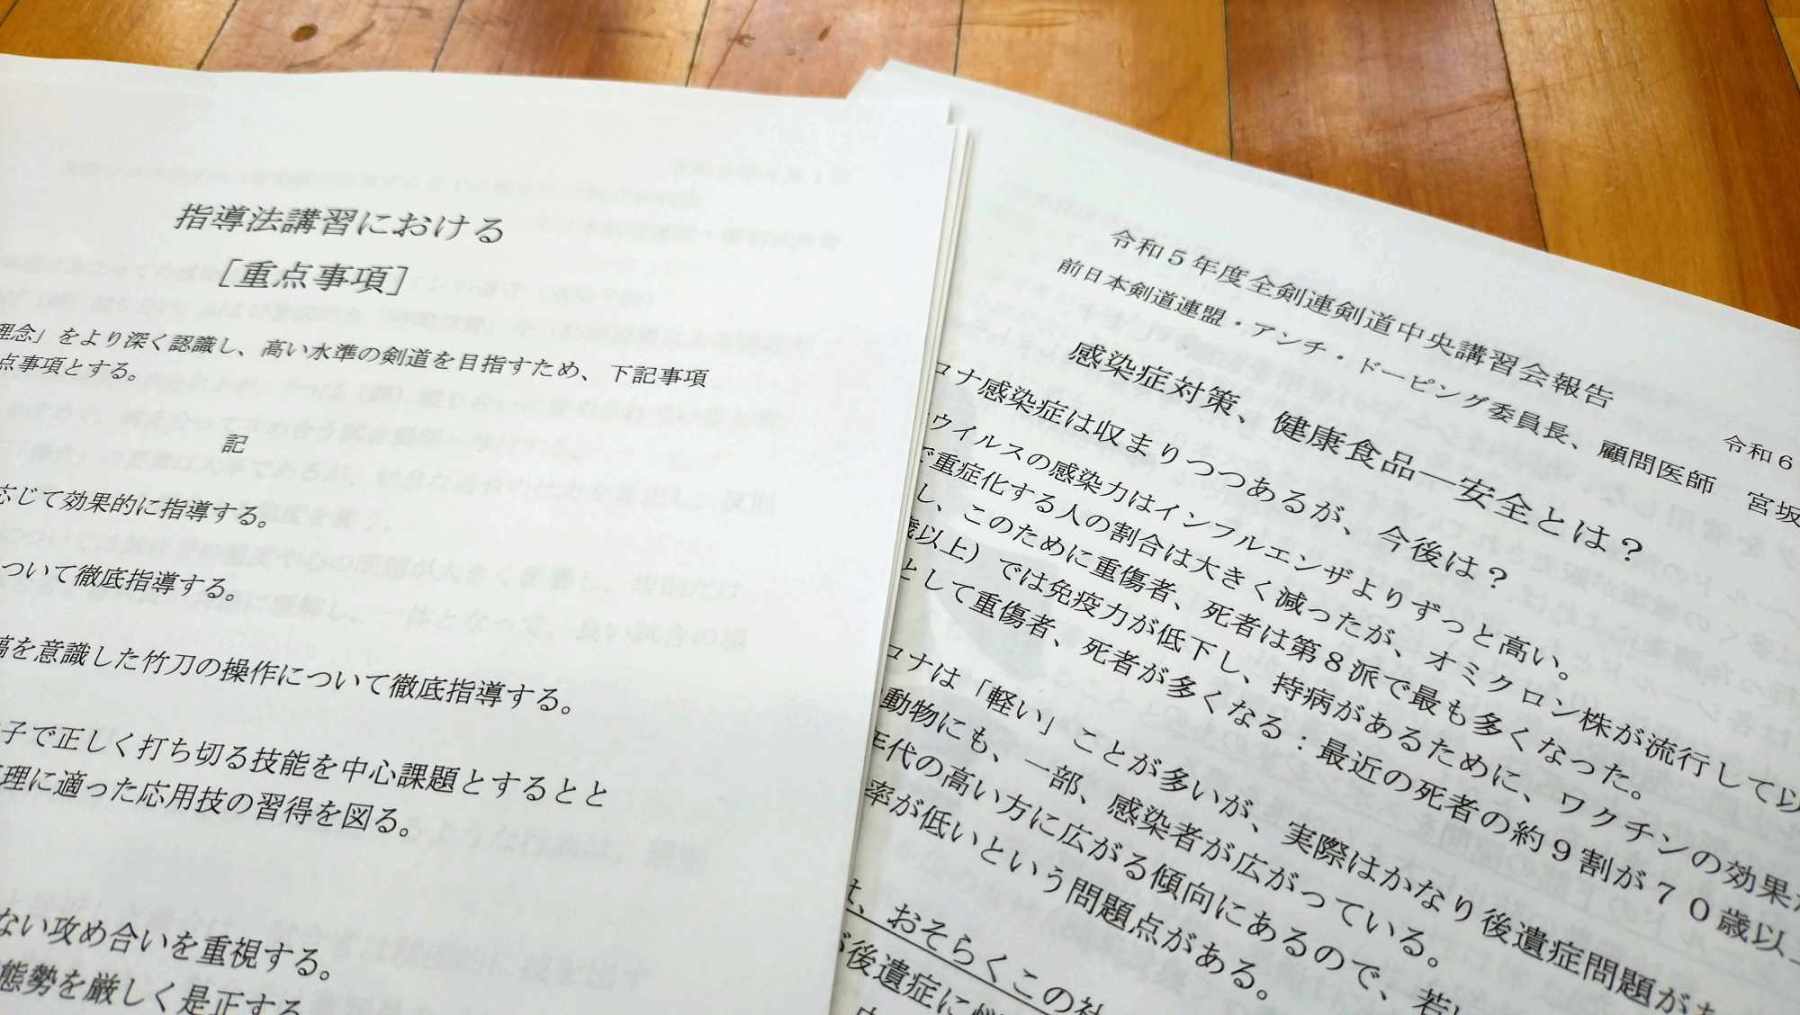 指導法講習における
［重点事項］
理念」をより深く認識し、高い水準の剣道を目指すため、下記事項
点事項とする。
記
応じて効果的に指導する。
ついて徹底指導する。
を意識した竹刀の操作について徹底指導する。
子で正しく打ち切る技能を中心課題とするとと
理に適った応用技の習得を図る。
ない攻め合いを重視する。
態勢を厳しく是正する
令和５年度全剣連剣道中央講習会報告
令和６
前日本剣道連盟・アンチ・ドーピング委員長、顧問医師　宮坂
感染症対策、健康食品―安全とは？
ロナ感染症は収まりつつあるが、今後は？
ウイルスの感染力はインフルエンザよりずっと高い。
で重症化する人の割合は大きく減ったが、オミクロン株が流行して以
し、このために重傷者、死者は第８派で最も多くなった。
歳以上）では免疫力が低下し、持病があるために、ワクチンの効果が
として重傷者、死者が多くなる：最近の死者の約９割が７０歳以上
ロナは「軽い」ことが多いが、実際はかなり後遺症問題があ
動物にも、一部、感染者が広がっている。
年代の高い方に広がる傾向にあるので、若い
率が低いという問題点がある。
は、おそらくこの社
が後遺症に